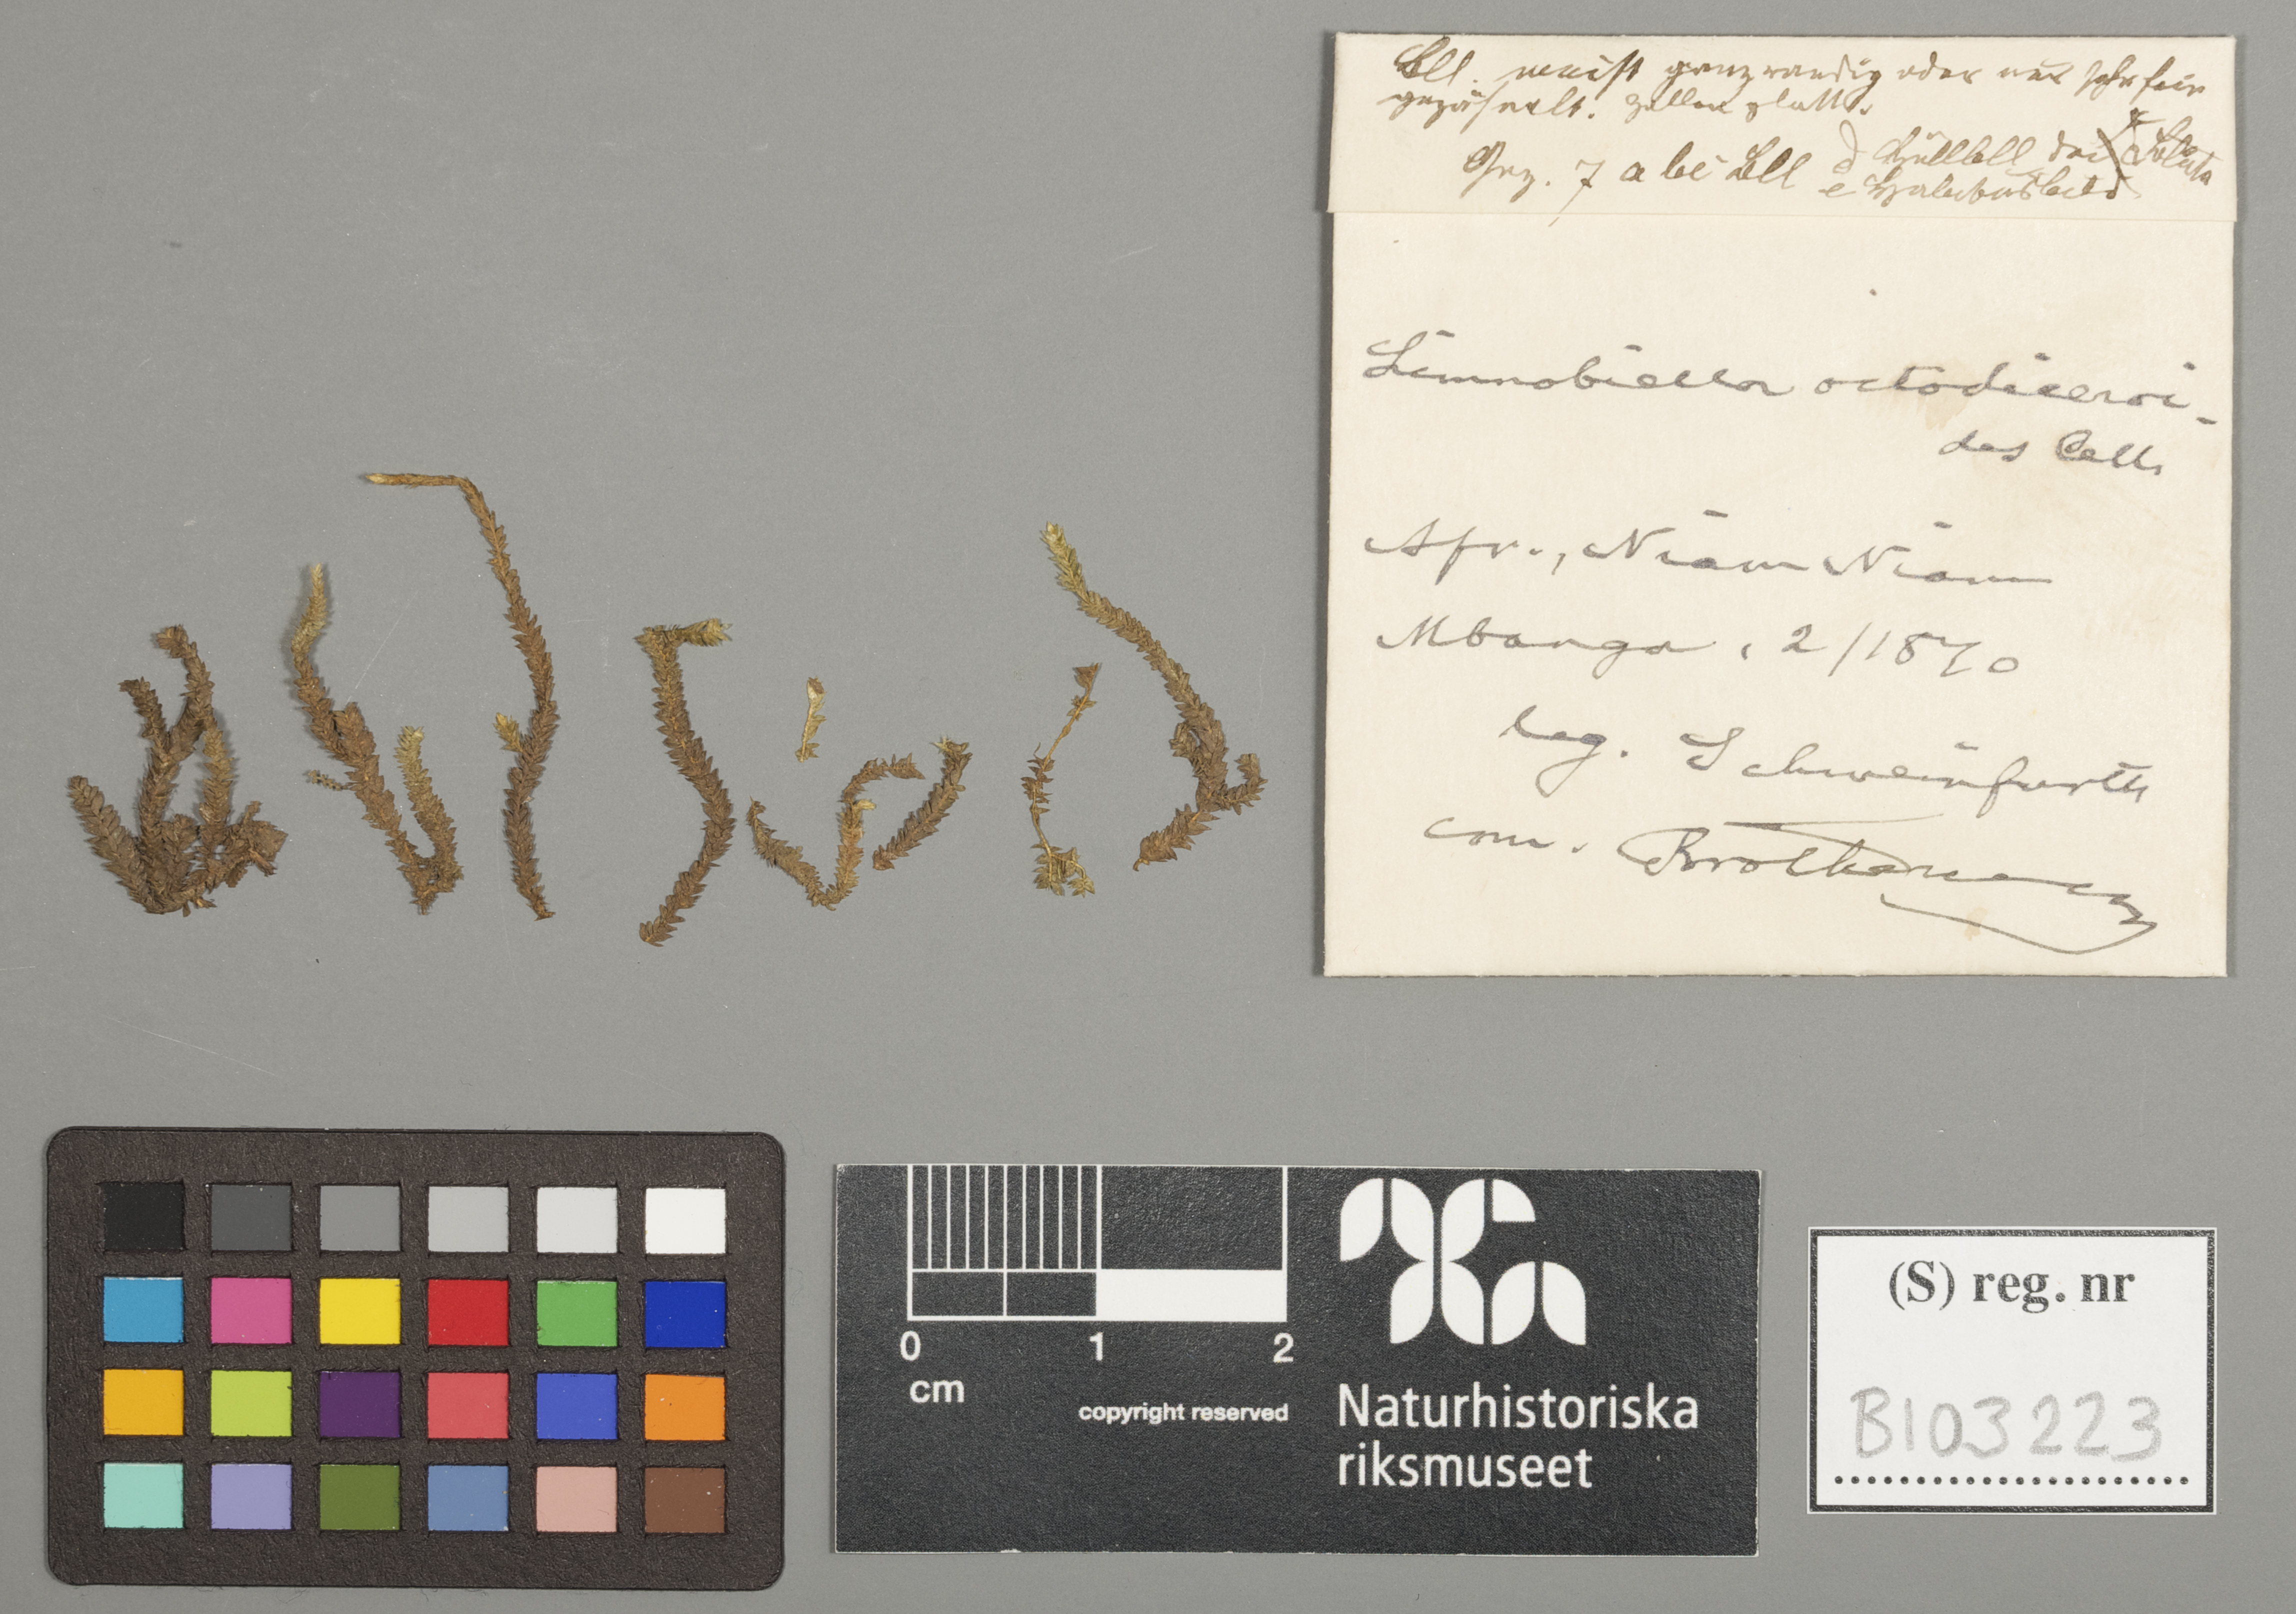 Bll. meist ganzrandig oder nur sehr fein
gezähnelt. Zellen glatt.
7 a b c Bll d Hüllbll
e
Limnobiella octodiceroi-
des Card
Afr., Niam Niam
Mbanga, 2/1870
leg. Schweinfurth
com. Brotherus
0 1 2
cm
copyright reserved
Naturhistoriska
riksmuseet
(S) reg. nr
B103223